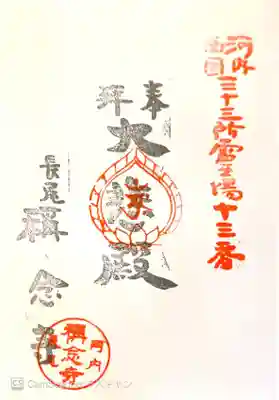 河内
西国
三十三所霊場十三番
奉
拜
大悲殿
長尾
稱念寺
河内
稱念寺
CS CamScanner でスキャン